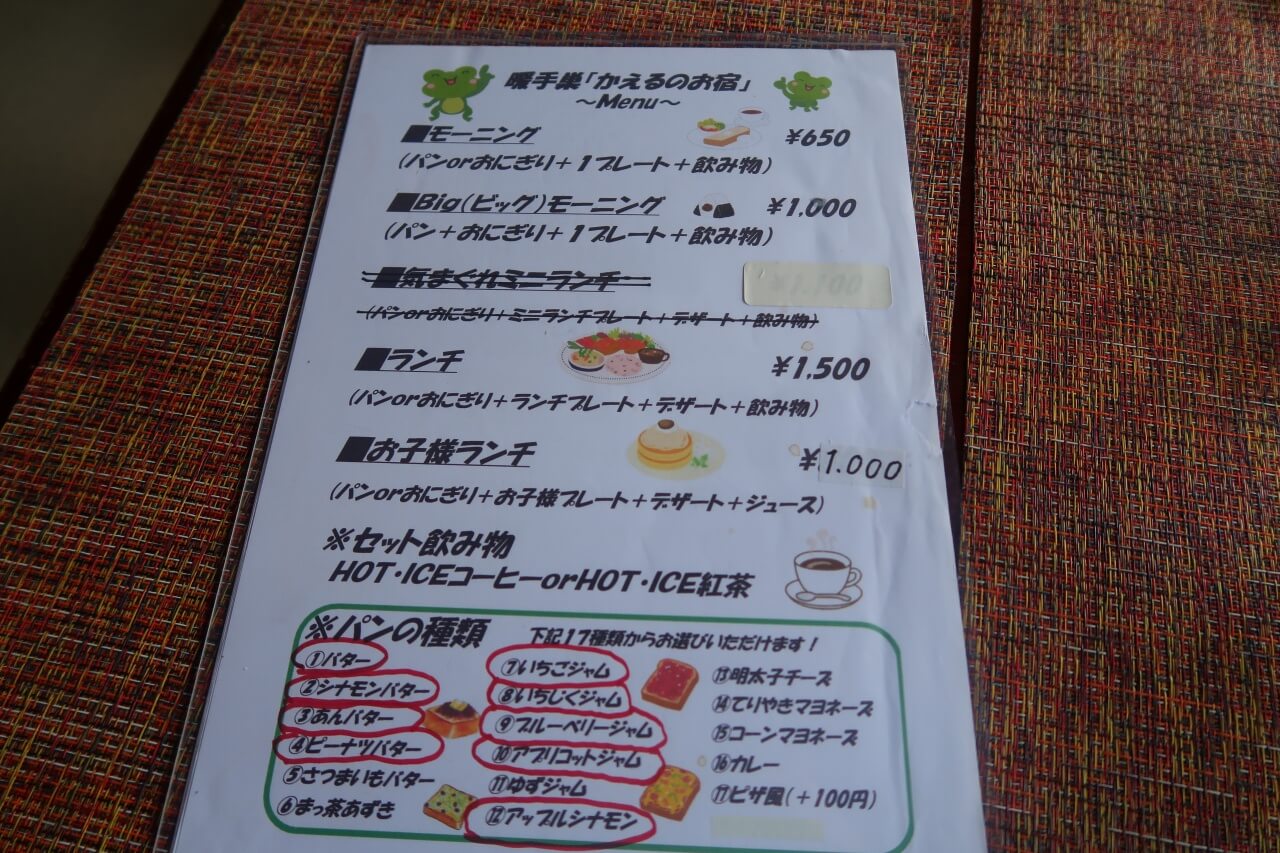 暖手巣「かえるのお宿」
～Menu～
■モーニング ¥650
(パンorおにぎり＋１プレート＋飲み物)
■Big(ビッグ)モーニング ¥1.000
(パン＋おにぎり＋１プレート＋飲み物)
■気まぐれミニランチ ¥1.100
(パンorおにぎり＋ミニランチプレート＋デザート＋飲み物)
■ランチ ¥1.500
(パンorおにぎり＋ランチプレート＋デザート＋飲み物)
■お子様ランチ ¥1.000
(パンorおにぎり＋お子様プレート＋デザート＋ジュース)
※セット飲み物
HOT・ICEコーヒーorHOT・ICE紅茶
※パンの種類 下記17種類からお選びいただけます！
①バター
②シナモンバター
③あんバター
④ピーナツバター
⑤さつまいもバター
⑥まっ茶あずき
⑦いちごジャム
⑧いちじくジャム
⑨ブルーベリージャム
⑩アプリコットジャム
⑪ゆずジャム
⑫アップルシナモン
⑬明太子チーズ
⑭てりやきマヨネーズ
⑮コーンマヨネーズ
⑯カレー
⑰ピザ風(＋100円)